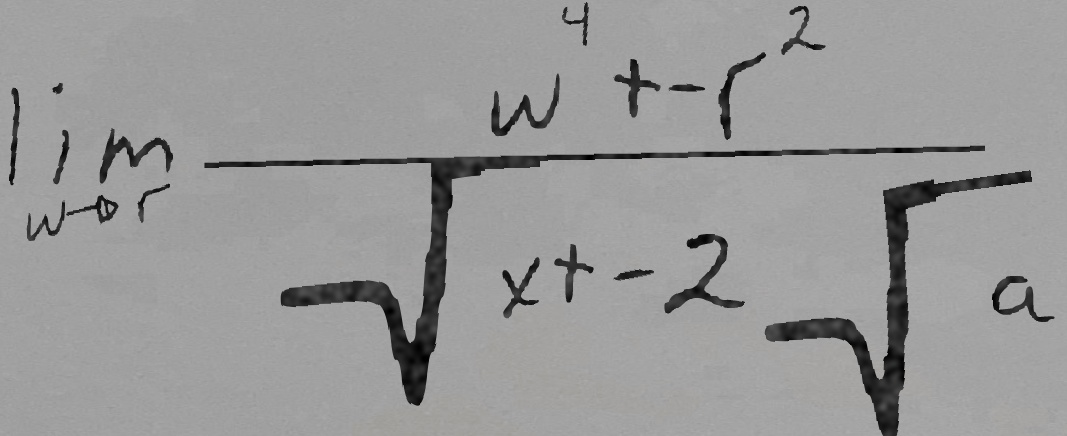 \lim_{w \to r} \frac{w^4 + -r^2}{\sqrt{x} + -2\sqrt{a}}